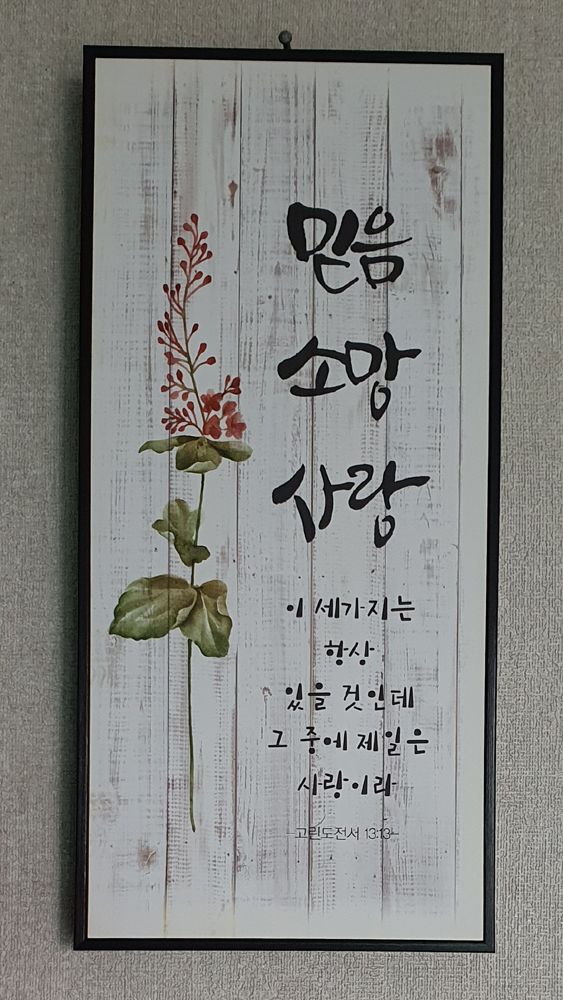 믿음
소망
사랑
이 세가지는
항상
있을 것인데
그 중에 제일은
사랑이라
-고린도전서 13:13-